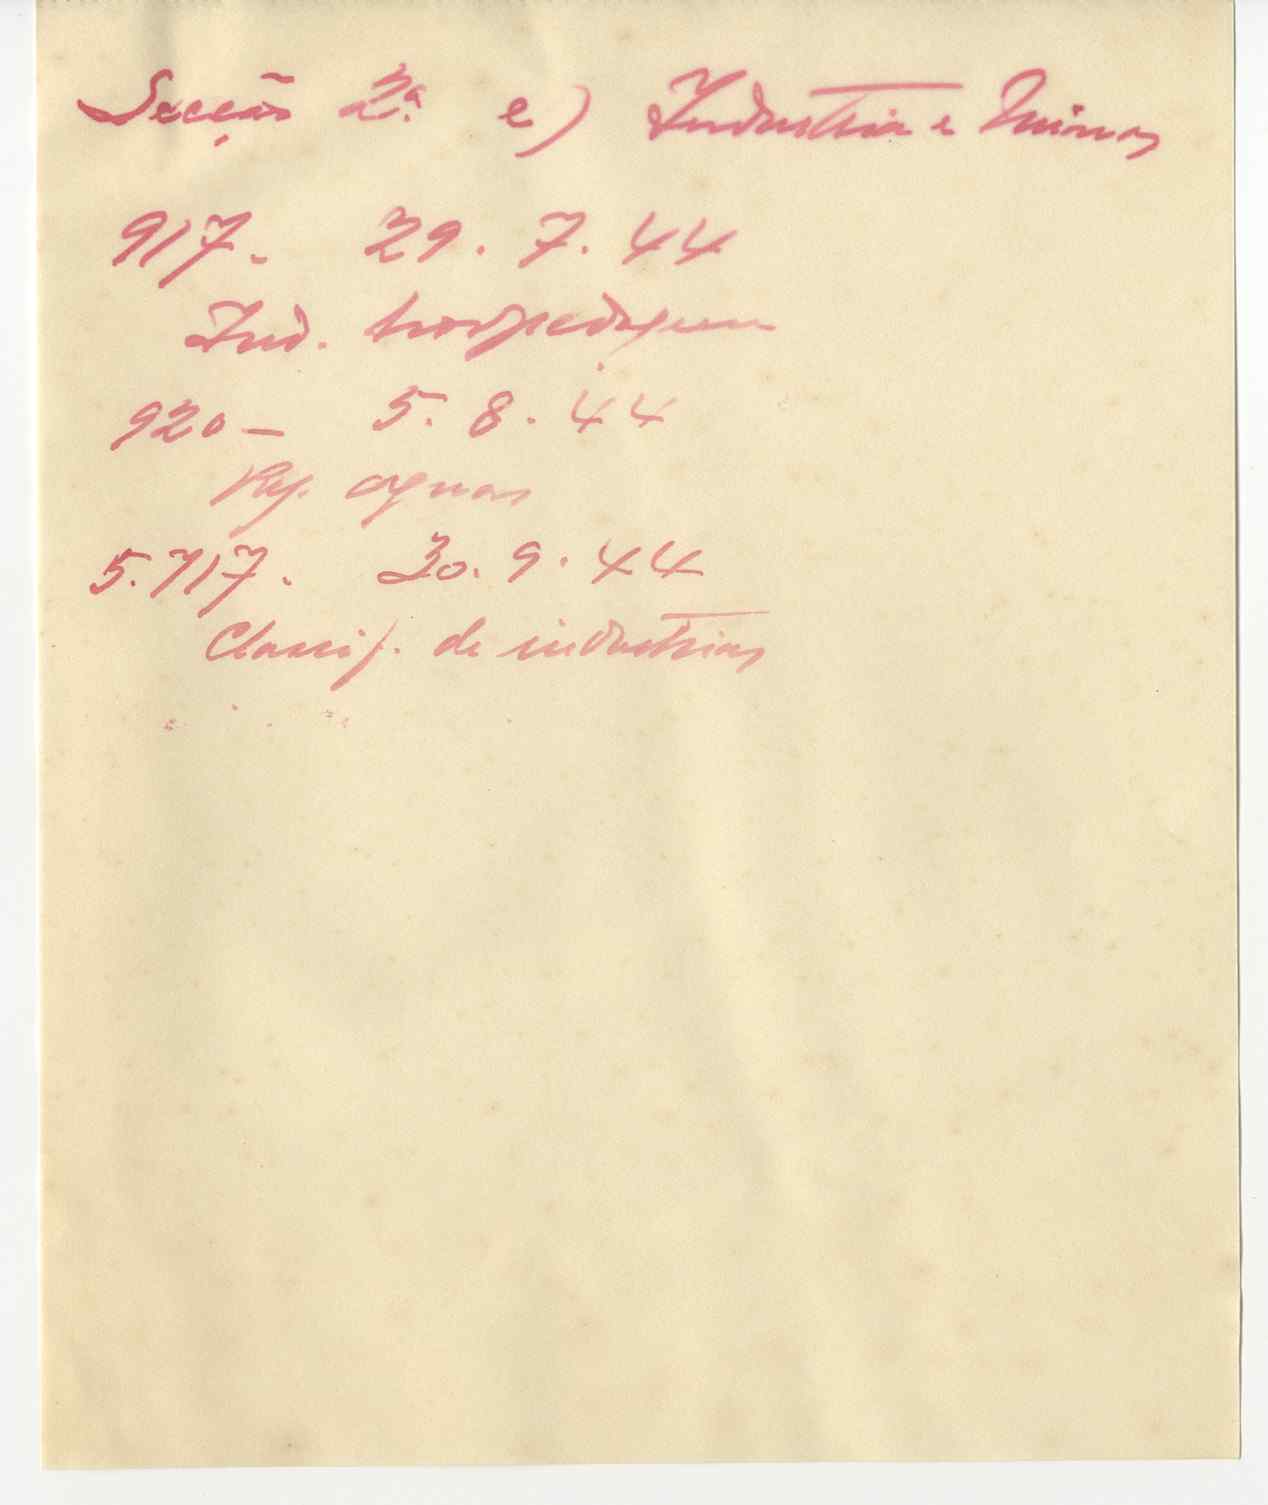 Secção 2ª e) Industria e Minas
917. 29.7.44
Ind. hospedagem
920 — 5.8.44
Reg. aguas
5.717. 30.9.44
Classif. de industrias